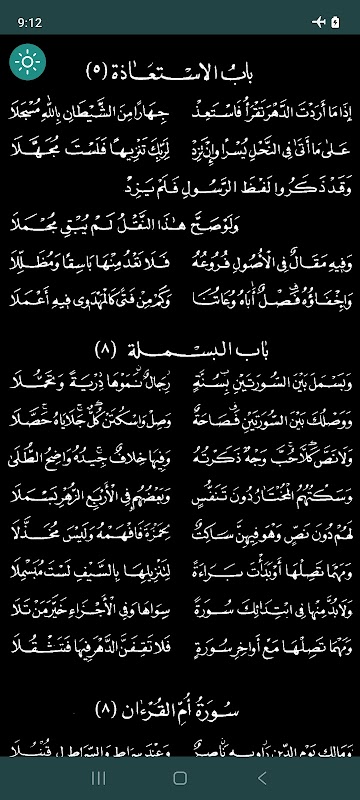 9:12
بَابُ الاِسْتِعَاذَةِ (٥)
إِذَا مَا أَرَدْتَ الدَّهْرَ تَقْرَأُ فَاسْتَعِذْ جِهَارًا مِنَ الشَّيْطَانِ بِاللهِ مُسْجَلَا
عَلَى مَا أَتَى فِي النَّحْلِ يُسْرًا وَإِنْ تَزِدْ لِرَبِّكَ تَنْزِيهًا فَلَسْتَ مُجَهَّلَا
وَقَدْ ذَكَرُوا لَفْظَ الرَّسُولِ فَلَمْ يَزِدْ
وَلَوْ صَحَّ هٰذَا النَّقْلُ لَمْ يُبْقِ مُجْمَلَا
وَفِيهِ مَقَالٌ فِي الْأُصُولِ فُرُوعُهُ فَلَا تَعْدُ مِنْهَا بَاسِقًا وَمُظَلِّلَا
وَإِخْفَاؤُهُ فَصْلٌ أَبَاهُ وُعَاتُنَا وَكَمْ مِنْ فَتًى كَالْمَهْدَوِى فِيهِ أَعْمَلَا
بَابُ الْبَسْمَلَةِ (٨)
وَبَسْمَلَ بَيْنَ السُّورَتَيْنِ بِسُنَّةٍ رِجَالٌ نَمَوْهَا دِرْيَةً وَتَحَمُّلَا
وَوَصْلُكَ بَيْنَ السُّورَتَيْنِ فَصَاحَةٌ وَصِلْ وَاسْكُتَنْ كُلٌّ جَلَايَاهُ حَصَّلَا
وَلَا نَصَّ كَلَّا حُبَّ وَجْهٌ ذَكَرْتُهُ وَفِيهَا خِلَافٌ جِيدُهُ وَاضِحُ الطُّلَى
وَسَكْتُهُمُ الْمُخْتَارُ دُونَ تَنَفُّسٍ وَبَعْضُهُمُ فِي الْأَرْبَعِ الزُّهْرِ بَسْمَلَا
لَهُمْ دُونَ نَصٍّ وَهْوَ فِيهِنَّ سَاكِتٌ لِحَمْزَةَ فَافْهَمْهُ وَلَيْسَ مُخَذَّلَا
وَمَهْمَا تَصِلْهَا أَوْ بَدَأْتَ بَرَاءَةً لِتَنْزِيلِهَا بِالسَّيْفِ لَسْتَ مُبَسْمِلَا
وَلَا بُدَّ مِنْهَا فِي ابْتِدَائِكَ سُورَةً سِوَاهَا وَفِي الْأَجْزَاءِ خَيَّرَ مَنْ تَلَا
وَمَهْمَا تَصِلْهَا مَعْ أَوَاخِرِ سُورَةٍ فَلَا تَقِفَنَّ الدَّهْرَ فِيهَا فَتَثْقُلَا
سُورَةُ أُمِّ الْقُرْءَانِ (٨)
وَمَالِكِ يَوْمِ الدِّينِ رَاوِيهِ نَاصِرٌ وَعِنْدَ سِرَاطٍ وَالسِّرَاطَ لِ قُنْبُلَا